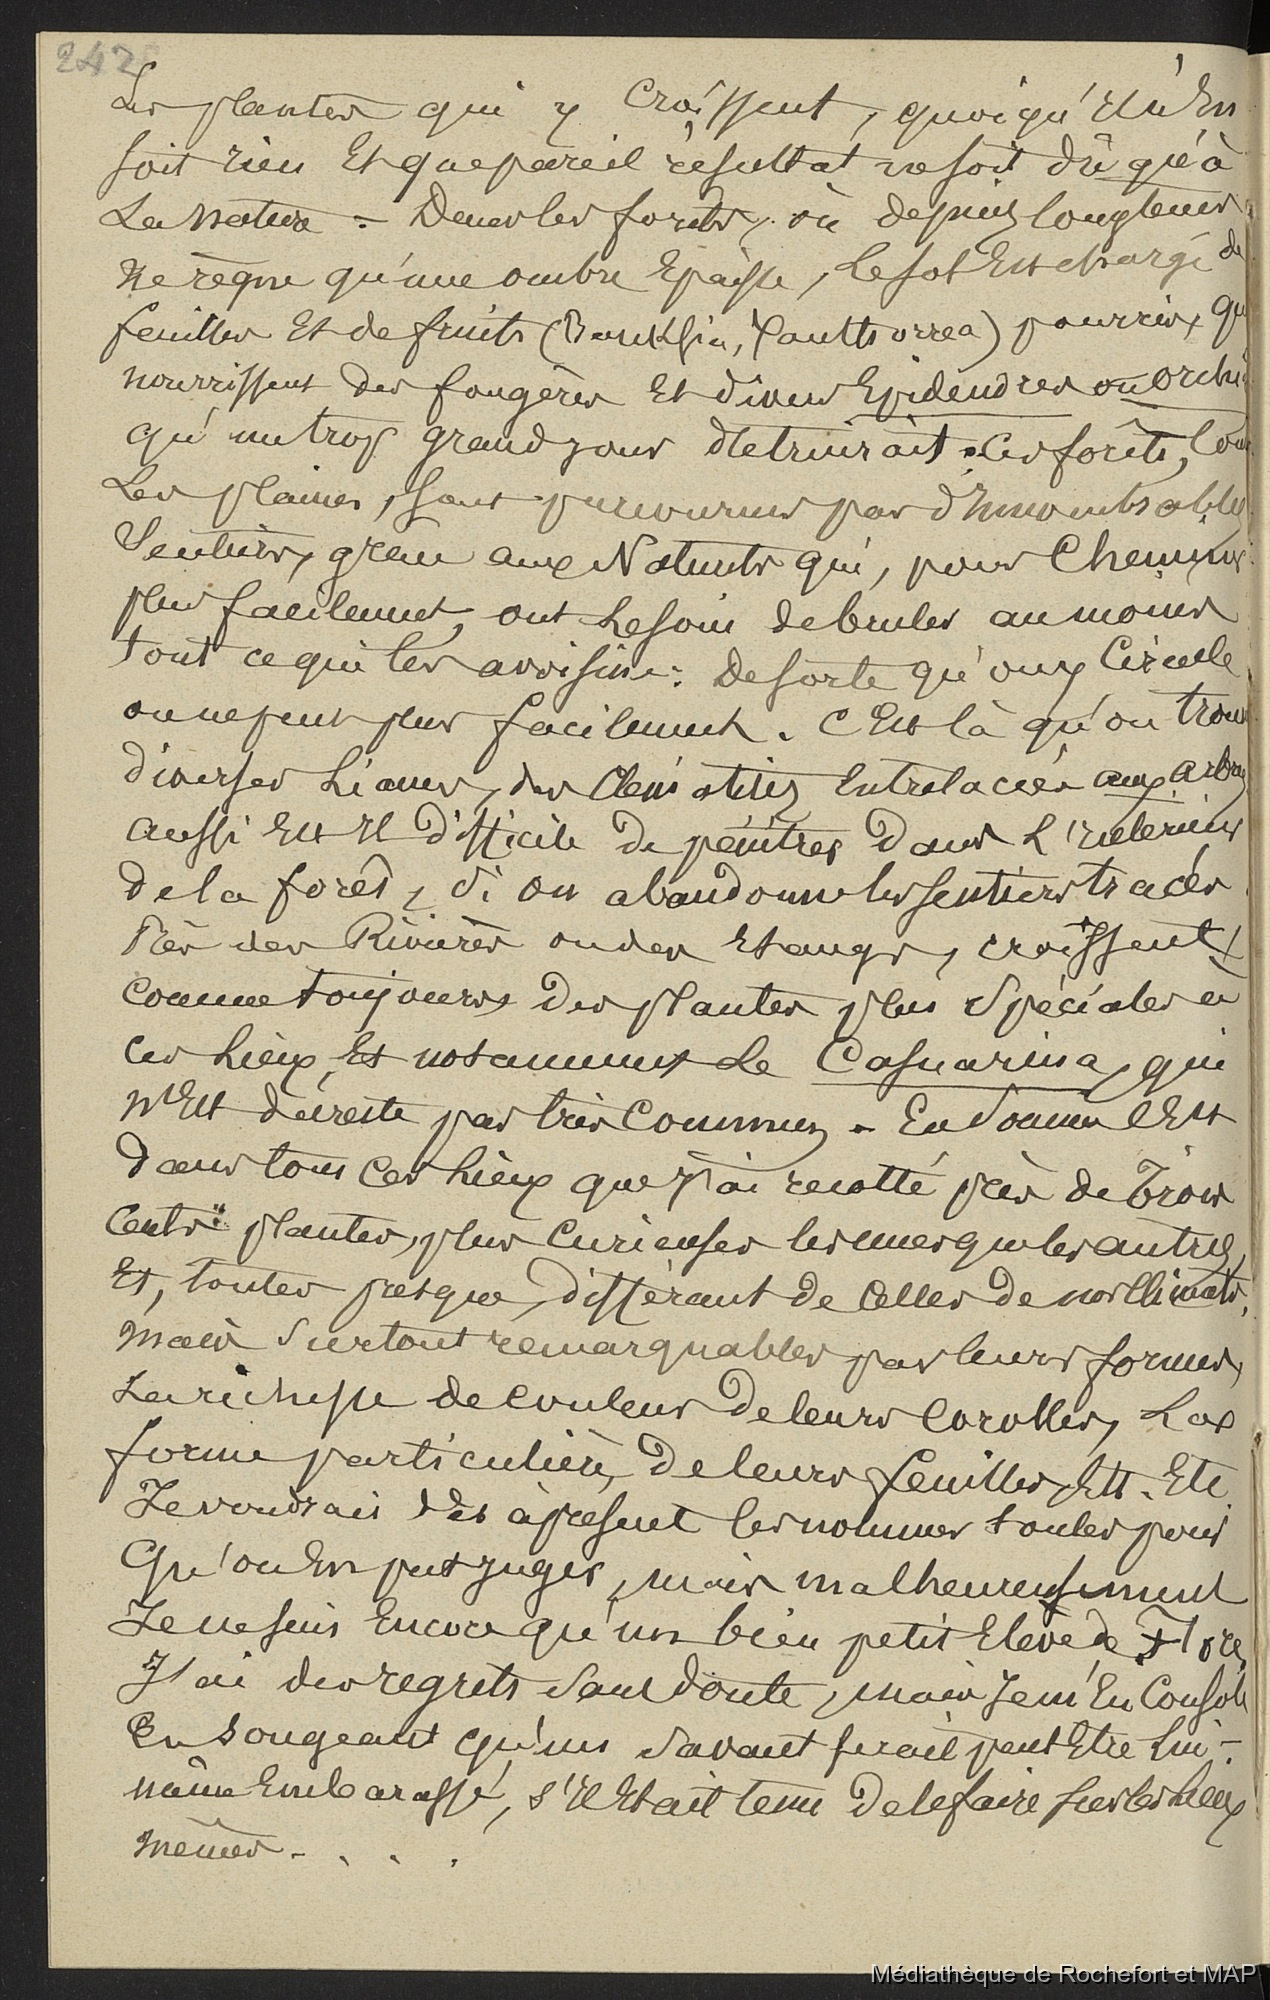 242
Les plantes qui y croissent, quoiqu'il n'en
soit rien Et que pareil résultat ne soit dû qu'à
La Nature - Dans les forêts, où depuis longtems
Ne règne qu'une ombre Epaisse, Le sol Est chargé de
feuilles Et de fruits (Banksia, Xanthorrea) pourris, qu
nourrissent des fougères Et divers Epidendres ou orchi
qu'un trop grand jour détruirait. Ces forêts, co
Les plaines, sont parcourus par d'Innombrables
Sentiers, grâce aux Naturels qui, pour Cheminer
plus facilement, ont besoin de bruler au moins
tout ce qui les avoisine: De sorte qu'on y Circule
on ne peut plus facilement. C'Est là qu'on trouv
diverses Lianes, des Clématites Entrelacées aux arbres
aussi Est Il difficile De pénétrer Dans L'intérieur
de la forêt, Si on abandonne les sentiers tracés
Près des Rivières ou des Etangs, croissent,
comme toujours des plantes plus Spéciales à
ces Lieux, Et notamment Le Casuarina, qui
N'Est du reste pas très Commun - En Somme C'Est
dans tous ces Lieux que J'ai récolté près de Trois
Cents plantes, plus Curieuses les unes que les autres,
Et, toutes presque, différant de Celles de nos Climats,
Mais Surtout remarquables par leurs formes,
La richesse de Couleur De leurs Corolles, La
forme particulière De leurs feuilles, Ett. Etc
Je voudrais dès à présent les nommer toutes pour
Qu'on En put Juger, mais malheureusement
Je ne suis Encore qu'un bien petit Elève de Flore,
J'ai des regrets Sans doute, mais Je m'En Console
En Songeant qu'un Savant serait peut Etre Lui-
même Embarassé, s'Il Etait tenu De le faire sur les Lieux
mêmes - . . .
Médiathèque de Rochefort et MAP